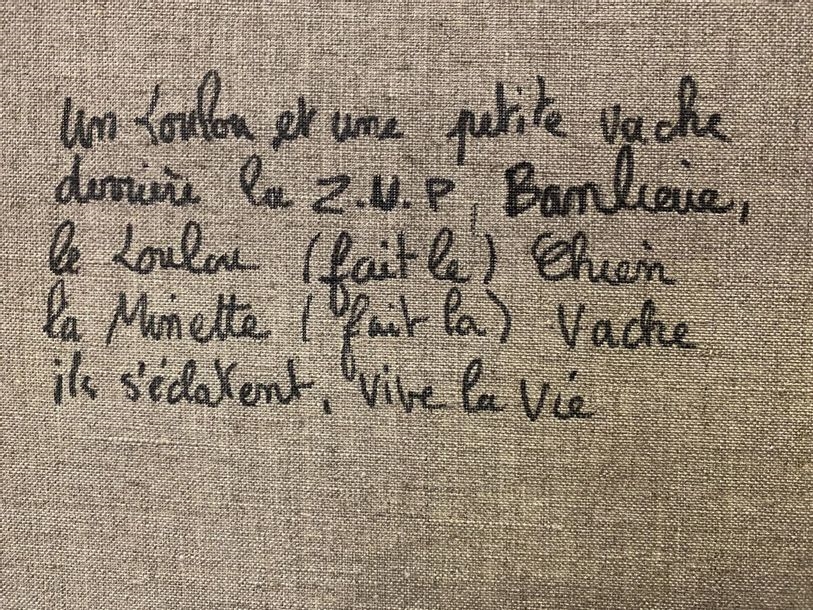 Un Loulou et une petite vache
derrière la Z.U.P, Banlieue,
le Loulou (fait le) Chien
la Minette (fait la) Vache
ils s'éclatent, vive la vie